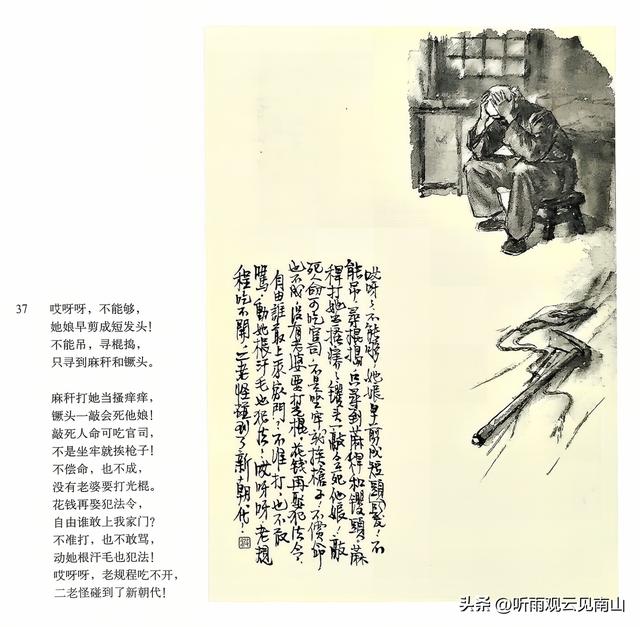 37
哎呀呀，不能够，
她娘早剪成短发头！
不能吊，寻棍捣，
只寻到麻秆和镢头。
麻秆打她当搔痒痒，
镢头一敲会死他娘！
敲死人命可吃官司，
不是坐牢就挨枪子！
不偿命，也不成，
没有老婆要打光棍。
花钱再娶犯法令，
自由谁敢上我家门？
不准打，也不敢骂，
动她根汗毛也犯法！
哎呀呀，老规程吃不开，
二老怪碰到了新朝代！
哎呀呀，不能够，她娘早剪成短頭髮，不
能吊，尋棍搗，只尋到蔴稈和钁頭，蔴
稈打她当搔痒痒，钁头一敲会死他娘！敲
死人命可吃官司，不是坐牢就挨槍子，不償命
也不成，沒有老婆要打光棍。花钱再娶犯法令，
自由誰敢上我家門？不准打，也不敢
罵，動她根汗毛也犯法！哎呀呀，老規
程吃不開，二老怪碰到了新朝代！
头条 @听雨观云见南山